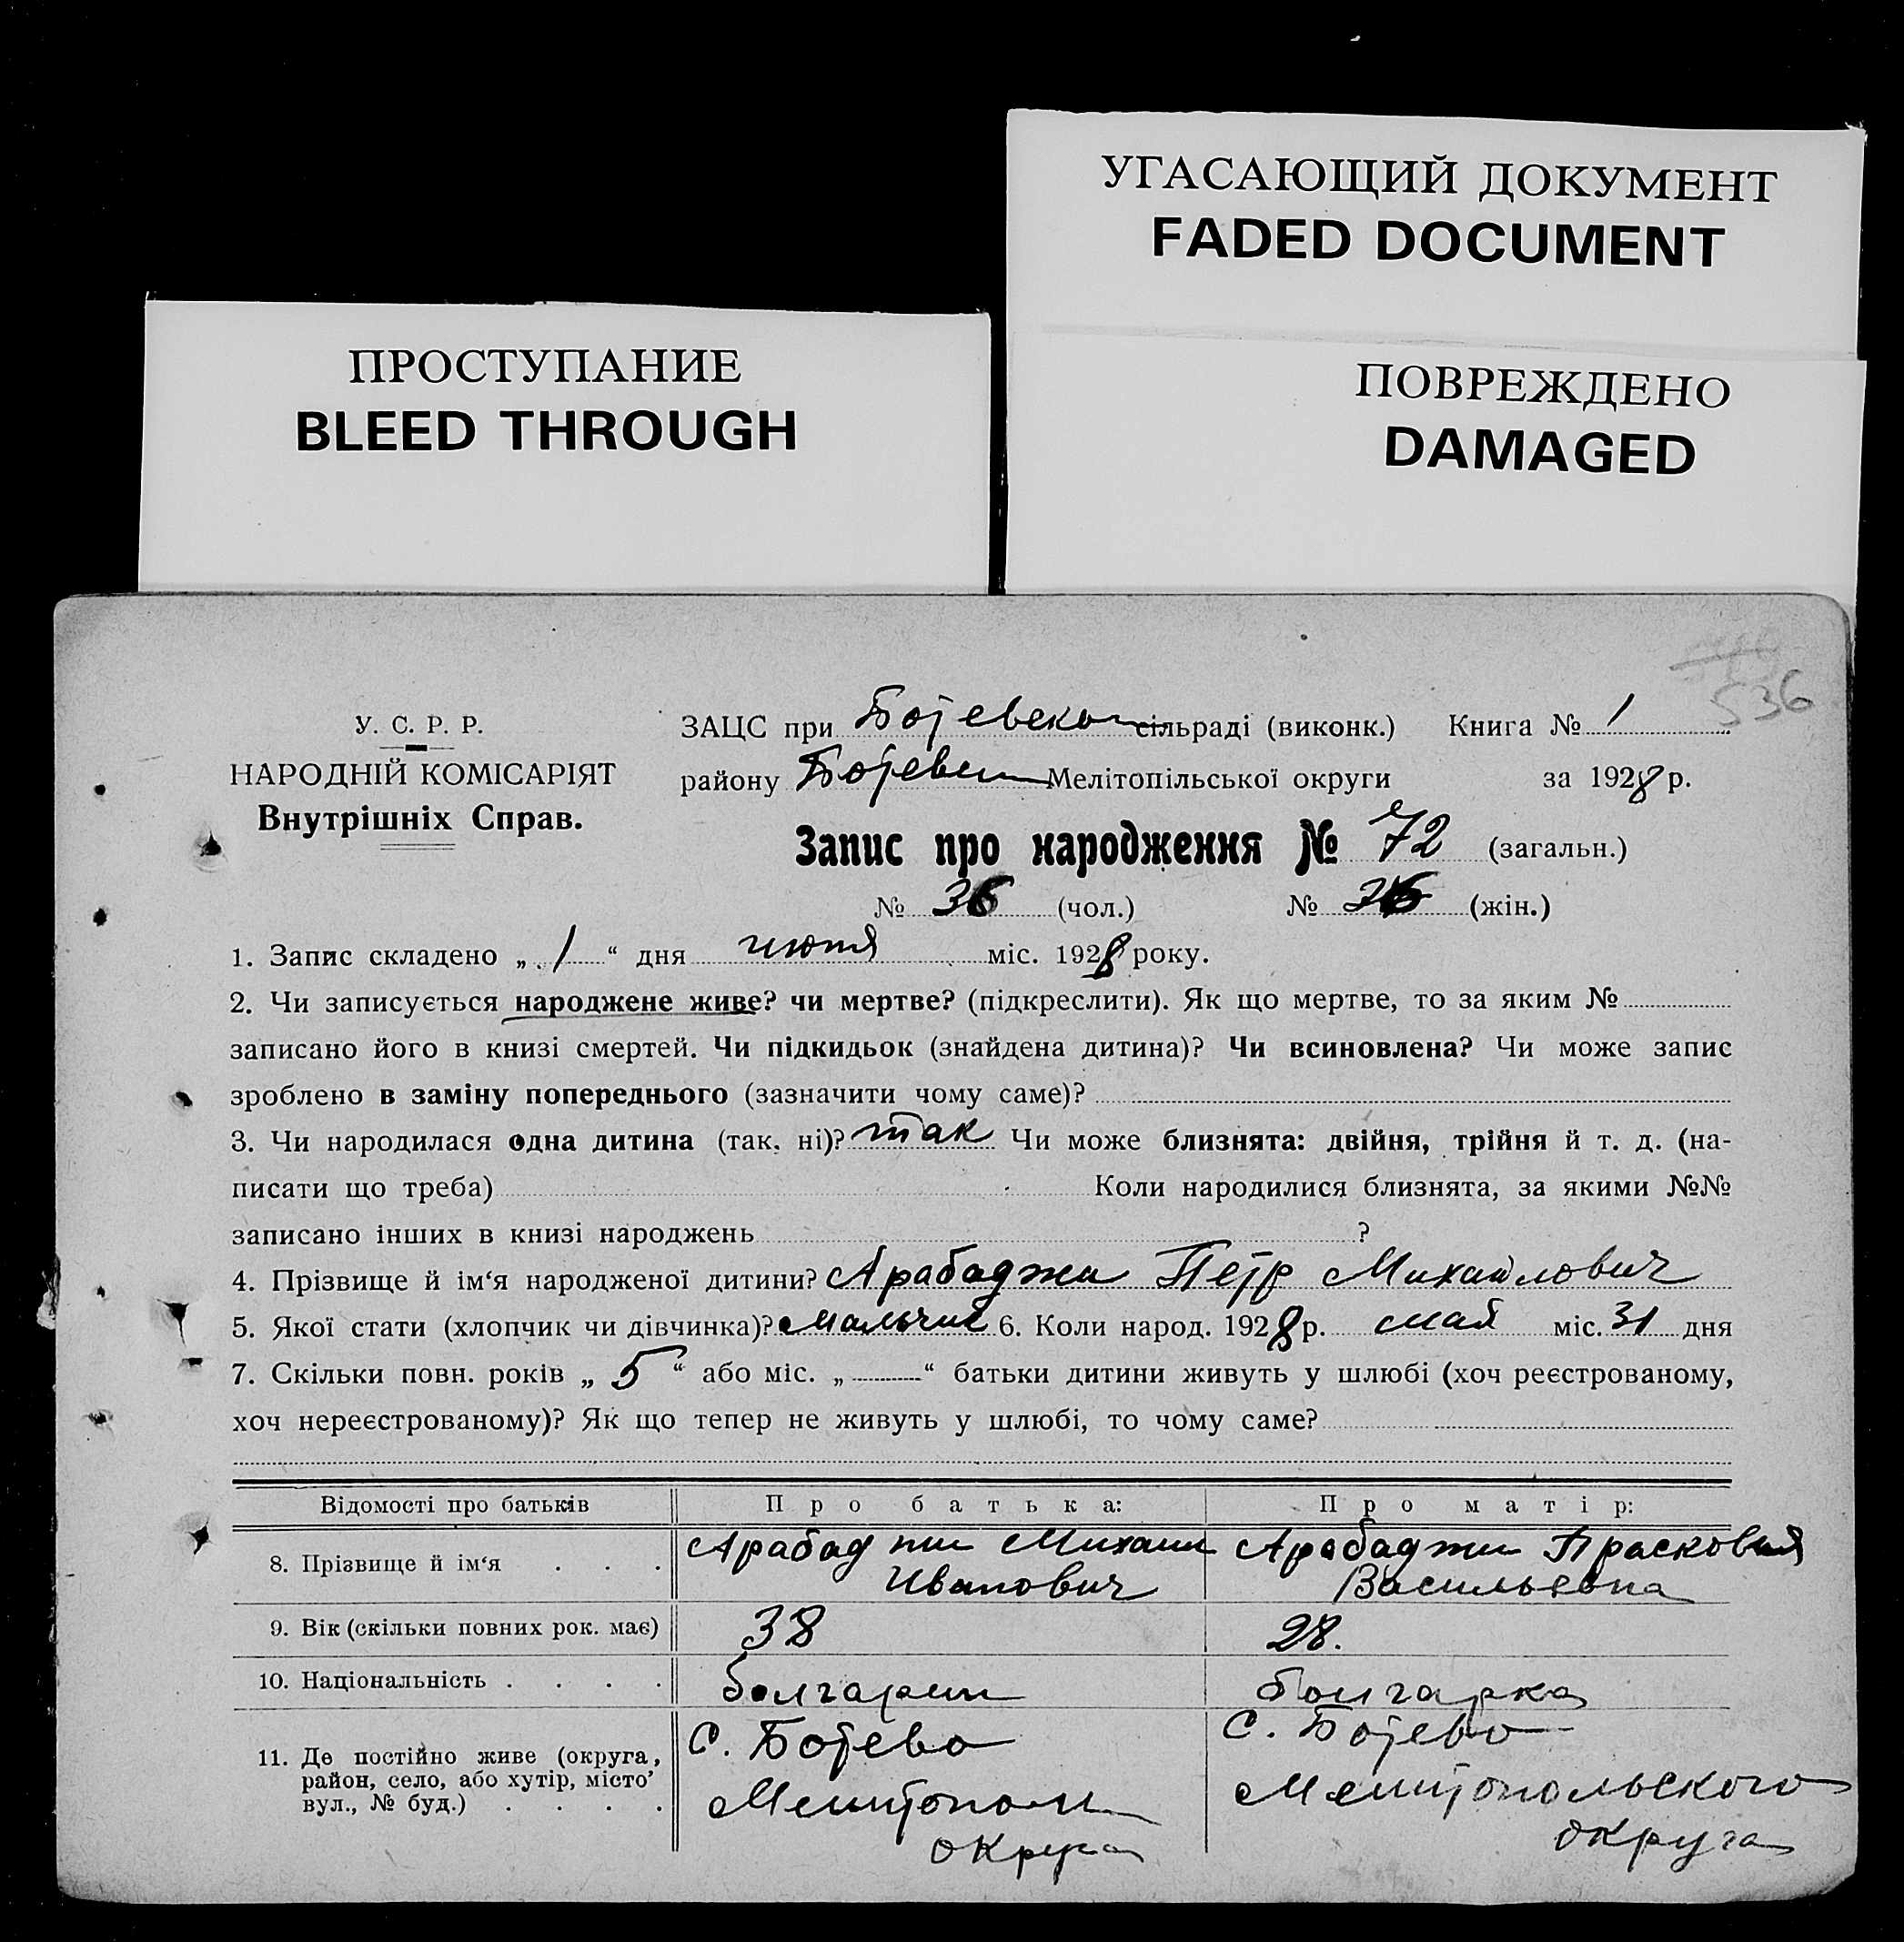 УГАСАЮЩИЙ ДОКУМЕНТ
FADED DOCUMENT
ПРОСТУПАНИЕ
BLEED THROUGH
ПОВРЕЖДЕНО
DAMAGED
536
У. С. Р. Р.
НАРОДНІЙ КОМІСАРІЯТ
Внутрішніх Справ.
ЗАЦС при Ботевском сільраді (виконк.) Книга № 1
району Ботевск Мелітопільської округи за 1928 р.
Запис про народження № 72 (загальн.)
№ 36 (чол.) № (жін.)
1. Запис складено „ 1 “ дня июня міс. 1928 року.
2. Чи записується народжене живе? чи мертве? (підкреслити). Як що мертве, то за яким №
записано його в книзі смертей. Чи підкидьок (знайдена дитина)? Чи всиновлена? Чи може запис
зроблено в заміну попереднього (зазначити чому саме)?
3. Чи народилася одна дитина (так, ні)? так Чи може близнята: двійня, трійня й т. д. (на-
писати що треба) Коли народилися близнята, за якими №№
записано інших в книзі народжень ?
4. Прізвище й ім‘я народженої дитини? Арабаджи Петр Михайлович
5. Якої стати (хлопчик чи дівчинка)? мальчик 6. Коли народ. 1928 р. мая міс. 31 дня
7. Скільки повн. років „ 5 “ або міс. „ “ батьки дитини живуть у шлюбі (хоч реєстрованому,
хоч нереєстрованому)? Як що тепер не живуть у шлюбі, то чому саме?
Відомості про батьків Про батька: Про матір:
8. Прізвище й ім‘я . . . Арабаджи Михаил Арабаджи Прасковия
Иванович Васильевна
9. Вік (скільки повних рок. має) 38 28.
10. Національність . . . . болгарин болгарка
11. Де постійно живе (округа, С. Ботево С. Ботево
район, село, або хутір, місто’
вул., № буд.) . . . . Мелитопол Мелитопольского
округа округа